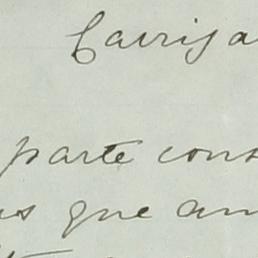 Carrisa
parte cons
us que am